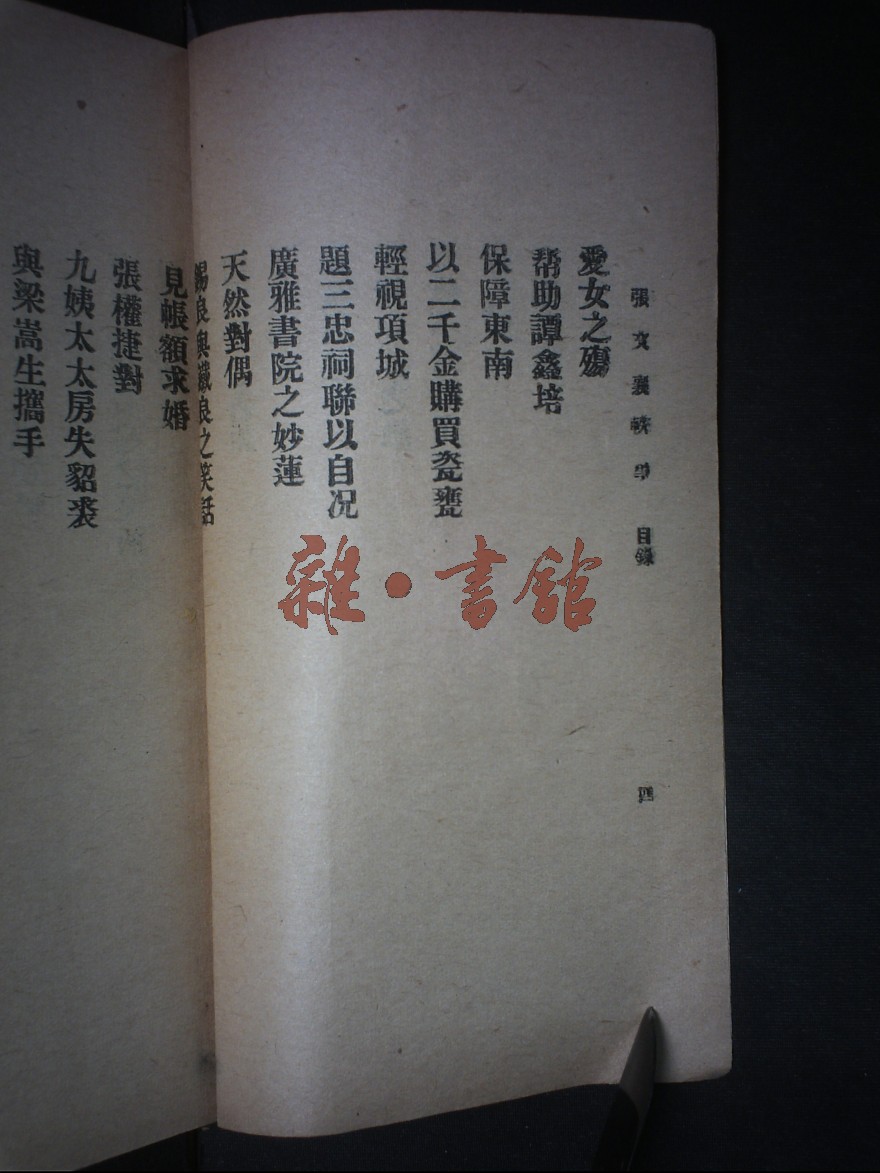 張文襄軼事 目錄
四
愛女之殤
幫助譚鑫培
保障東南
以二千金購買瓷甕
輕視項城
題三忠祠聯以自况
廣雅書院之妙蓮
天然對偶
錫良與鐵良之笑話
見帳額求婚
張權捷對
九姨太太房失貂裘
與梁嵩生攜手
雜·書館